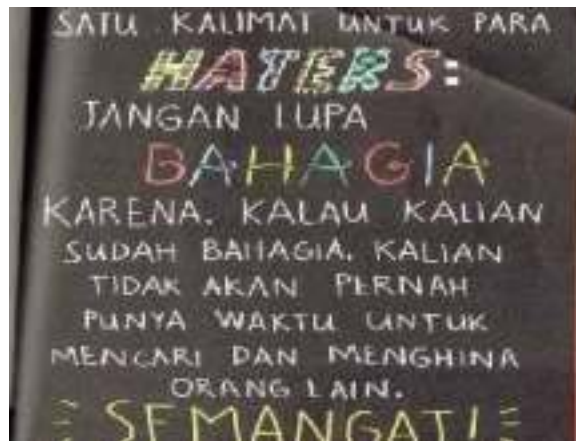 SATU KALIMAT UNTUK PARA
HATERS:
JANGAN LUPA
BAHAGIA
KARENA. KALAU KALIAN
SUDAH BAHAGIA. KALIAN
TIDAK AKAN PERNAH
PUNYA WAKTU UNTUK
MENCARI DAN MENGHINA
ORANG LAIN.
SEMANGAT!